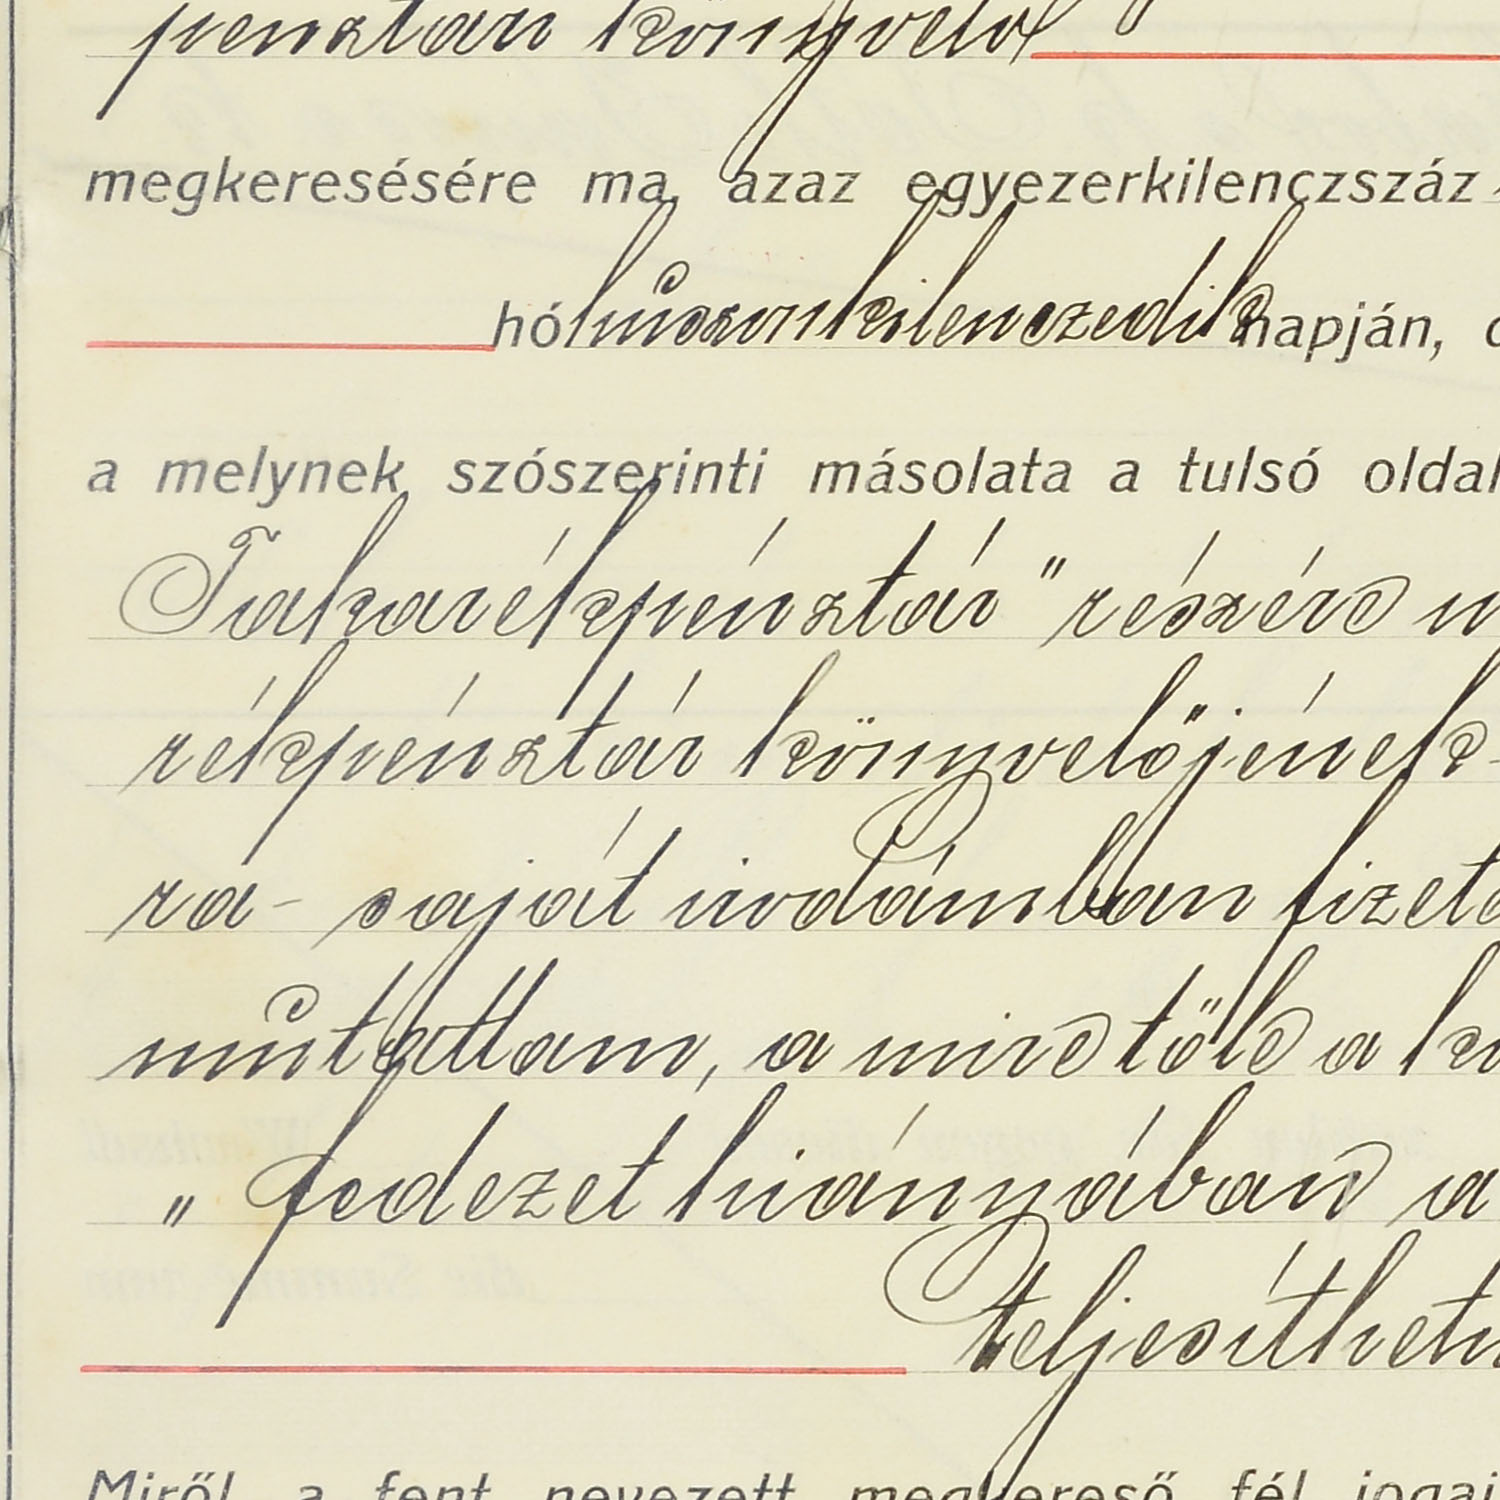 pénztári könyvelő
megkeresésére ma, azaz egyezerkilenczszáz
hó huszonkilenczedik napján,
a melynek szószerinti másolata a tulsó oldal
Takarékpénztár" részére
rékpénztár könyvelőjének
ra - saját irodámban fizeté
mutattam, a mire tőle a
„ fedezet hiányában a
teljesíthet
Miről a fent nevezett megkereső fél jogai